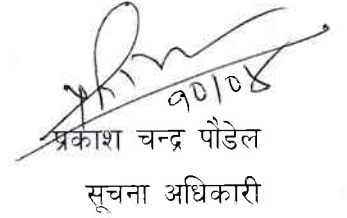 १०/०४
प्रकाश चन्द्र पौडेल
सूचना अधिकारी